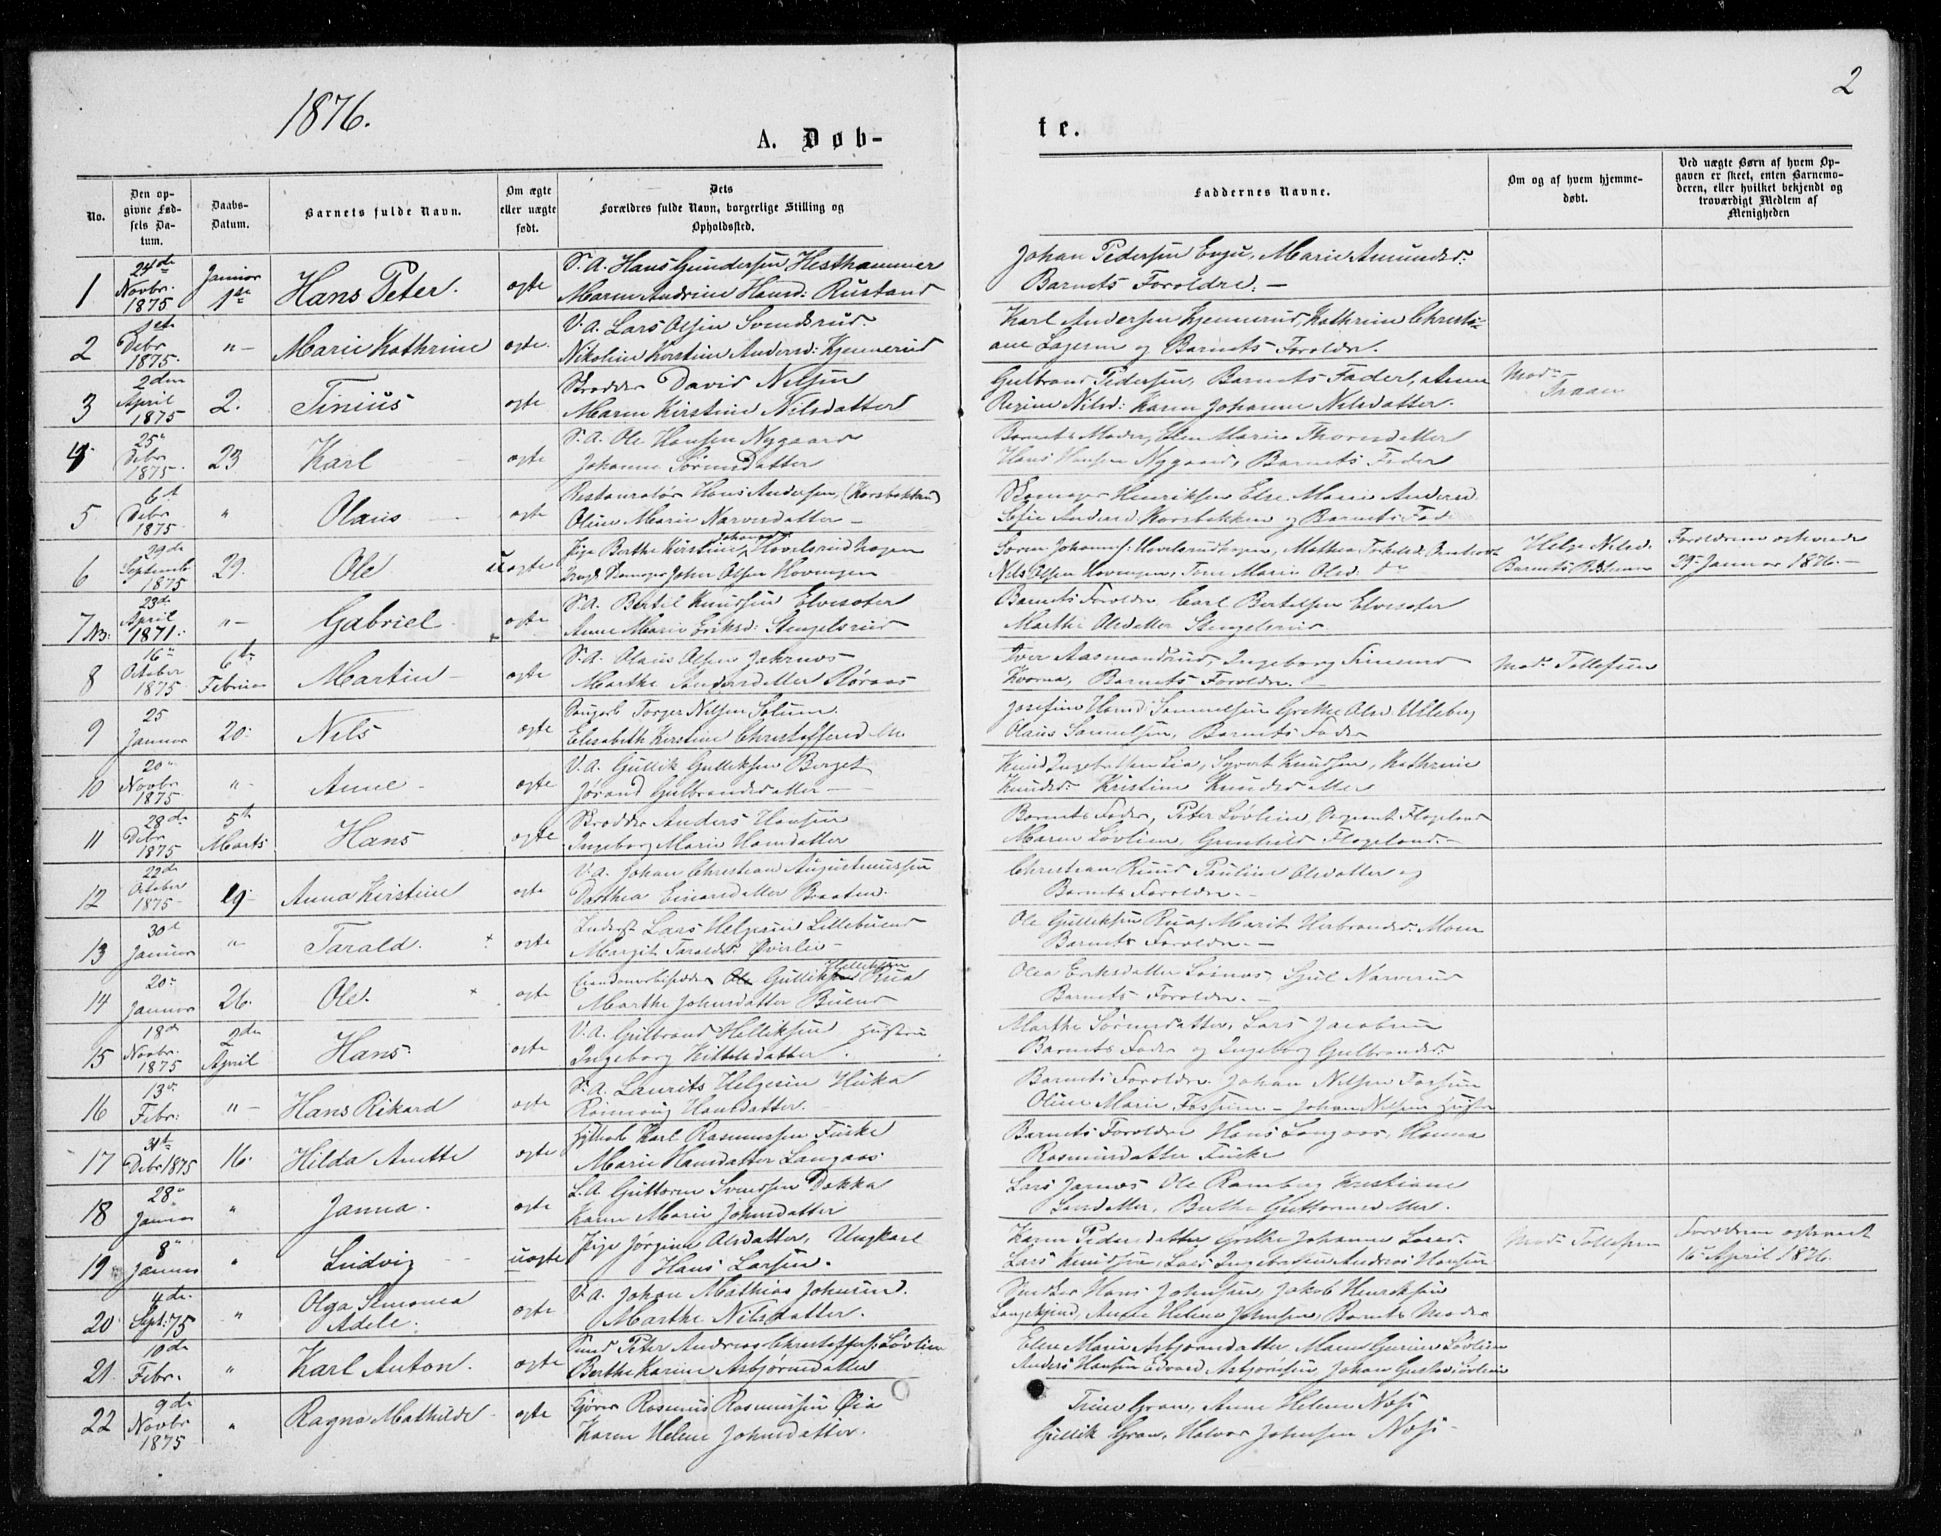 1876.
2
A. Døb-
te.
No.
Den op-
givne Fød-
sels Da-
tum.
Daabs-
Datum.
Barnets fulde Navn.
Om ægte
eller uægte
født.
Dets
Forældres fulde Navn, borgerlige Stilling og
Opholdssted.
Faddernes Navne.
Om og af hvem hjemme-
døbt.
Ved uægte Børn af hvem Op-
gaven er skeet, enten Barnemo-
deren, eller hvilket bekjendt og
troværdigt Medlem af
Menigheden
1 24de Novbr. 1875 Januar 1ste Hans Peter. ægte S. A. Hans Gundersen Hesthammer
Maren Andrine Hansd: Rustand
Johan Pedersen Enger, Marie Amundsd:
Barnets Forældre. —
2 1ste Debr 1875. "— Marie Kathrine ægte. V. A. Lars Olsen Svendsrud.
Nikoline Kirstine Andersd: Kjennerud
Karl Andersen Kjennerud, Kathrine Christi-
ane Lagesen og Barnets Forældre.
3 2den April 1875 2. Tinius ægte Skrædder David Nilsen
Maren Kirstine Nilsdatter
Gulbrand Pedersen, Barnets Fader, Anne
Regine Nilsd: Karen Johanne Nilsdatter.
Mad: Traaen
4 25" Debr 1875. 23 Karl ægte S. A. Ole Hansen Nygaard
Johanne Sørensdatter
Barnets Moder, Elen Marie Thorsdatter
Hans Hansen Nygaard, Barnets Fader
5 6t Debr 1875 " Olaus ægte Restauratør Hans Andersen, (Korsbakken)
Oline Marie Narvesdatter —
Skomager Henriksen Else Marie Andersd
Sofie Andersd Korsbakken og Barnets Fad:
6 29de Septembr 1875 29. Ole uægte Pige Berthe Kirstine Johansd Hovelsrudhagen
Ungk Skomager Johan Olsen Hovengen
Søren Johannes: Hovelsrudhagen, Mathea
Nils Olsen Hovengen, Tone Marie Olsd: do
Helge Nilsd:
Barnets Bedstemor
Forældrene
29 Januar 1876. —
7 NB: 23de April 1871. "— Gabriel ægte S. A. Bertel Knudsen Elvesæter
Anne Marie Eriksd: Stengelsrud
Barnets Forældre Carl Bertelsen Elvesæter
Marthe Olsdatter Stengelsrud
8 16" October 1875 6te Februar Martin ægte S. A. Olaus Olsen Jahrnes
Marthe Andersdatter Røraas
Iver Aasmondrud, Ingeborg
Kværna, Barnets Forældre. —
Mad: Tollefsen
9 25 Januar 20. Nils ægte Torger Nilsen Solum.
Elisabeth Kirstine Christoffersdatter.
Josefine Hansd: Samuelsen Grethe Olsd. Ulleberg
Olaus Samuelsen, Barnets Fader
10 20" Novbr. 1875 "— Anne ægte V. A. Gullik Gulliksen Berget
Jørand Gulbrandsdatter —
Knud Ingebretsen Lia, Syvert Knudsen, Kathrine
Knudsd: Kristine Knudsdatter
11 28de Debr 1875 5te Marts Hans ægte Skrædder Anders Hansen
Ingeborg Marie Hansdatter
Barnets Fader, Peter Løvlien, Sergeant Flageland
Maren Løvlien, Gunhild Flageland. —
12 22de October 1875 19 Anna Kirstine ægte V. A. Johan Christian Augustinussen
Dorthea Einarsdatter Braaten.
Christian Ruud Pauline Olsdatter og
Barnets Forældre. —
13 30te Januar " Tarald. ægte Inderst Lars Helgesen Lillebuend
Margit Taraldsd: Øverlie —
Ole Gulliksen Rua, Marit Herbrandsd: Moen
Barnets Forældre. —
14 20. Januar 26. Ole. ægte Gulliksen Helleksen Rua
Marthe Johnsdatter Buend
Olea Eriksdatter Narverud
Barnets Forældre. —
15 18de Novbr. 1875 2den April Hans. ægte V. A. Gulbrand Helliksen
Ingeborg Kittelsdatter.
Marthe Sørensdatter, Lars Jacobsen
Barnets Fader og Ingeborg Gulbrandsd:
16 13de Febr: "— Hans Rikard ægte S. A. Laurits Helgesen Heika
Hansdatter.
Barnets Forældre. Johan Nilsen Fossum
Oline Marie Fossum — Johan Nilsen Hustru
17 31te Debr 1875 16. Hilda Anette ægte Karl Rasmussen Fiske
Marie Hansdatter Langaas.
Barnets Forældre Hans Langaas, Hanna
Rasmusdatter Fiske
18 28" Januar " Janna. ægte L. A. Guttorm Svendsen Dokka
Karen Marie Johnsdatter
Lars Jarnes Ole Ramberg Kristiane
Larsdatter, Berthe Guttormsdatter.
19 8" Januar " Ludvig uægte Pige Jørgine Olsdatter, Ungkarl
Hans Larsen.
Karen Pedersdatter Grethe Johanne Larsd.
Lars Knudsen, Lars Ingebretsen Andreas Hansen
Mad: Tollefsen
Forældrene
16 April 1876.
20 4de Sept: 75 " Olga Simonea
Adele. ægte V. A. Johan Mathias Johnsen.
Marthe Nilsdatter.
Snedker Hans Johnsen, Jakob Henriksen
Langekjend, Anne Helene Johnsen, Barnets Moder
21. 10de Febr. " Karl Anton. ægte Peter Andreas Christoffers: Løvlien
Berthe Karine Asbjørnsdatter
Elen Marie Asbjørnsdatter Maren Gurine Løvlien
Anders Hansen Edvard Asbjørnsen Johan Gustav Løvlien
22 9de Novbr 1875 " Ragna Mathilde ægte Kjører Rasmus Rasmussen Øia
Karen Helene Johnsdatter.
Trine Gran, Anne Helene Næsi
Gullik Gran, Halvor Johnsen Næsi —